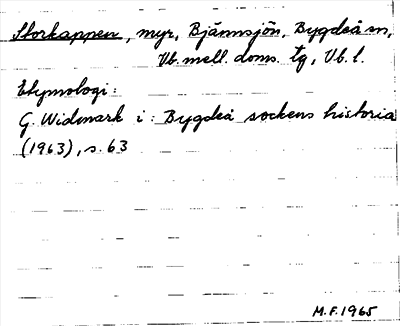 Storkappen, myr, Bjännsjön, Bygdeå sn,
Vb. mell. doms. tg, Vb. l.
Etymologi:
G. Widmark i: Bygdeå sockens historia
(1963), s. 63
M.F. 1965